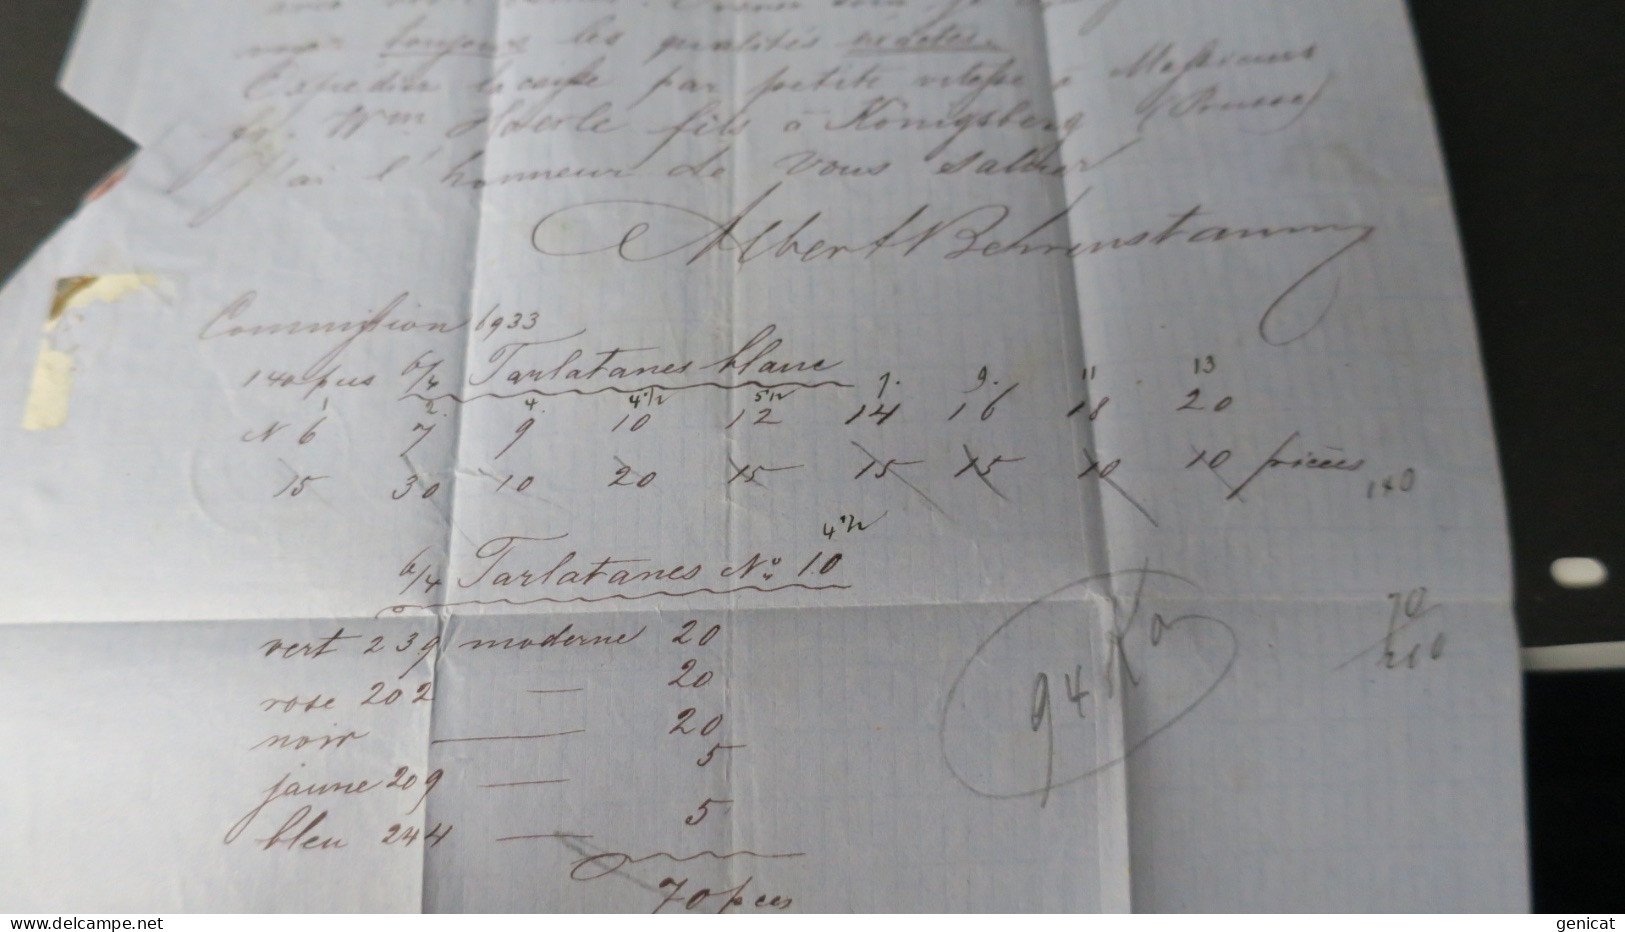 vous toujours les qualités exactes.
Expedier la caisse par petite vitesse à Messieurs
Wm Haerle fils à Königsberg (Prusse)
J'ai l'honneur de vous saluer
Albert Behrenstamm
Commission 6933
140 pces 6/4 Tarlatanes blanc
1 2. 4. 4 1/2 5 1/2 7. 9. 11 13
N 6 7 9 10 12 14 16 18 20
15 30 10 20 15 15 15 10 10 pièces 140
4 1/2
6/4 Tarlatanes No 10
vert 239 moderne 20
rose 202 — 20
noir — 20
jaune 209 — 5
bleu 244 — 5
70 pces
94 Ko
70
210
genicat